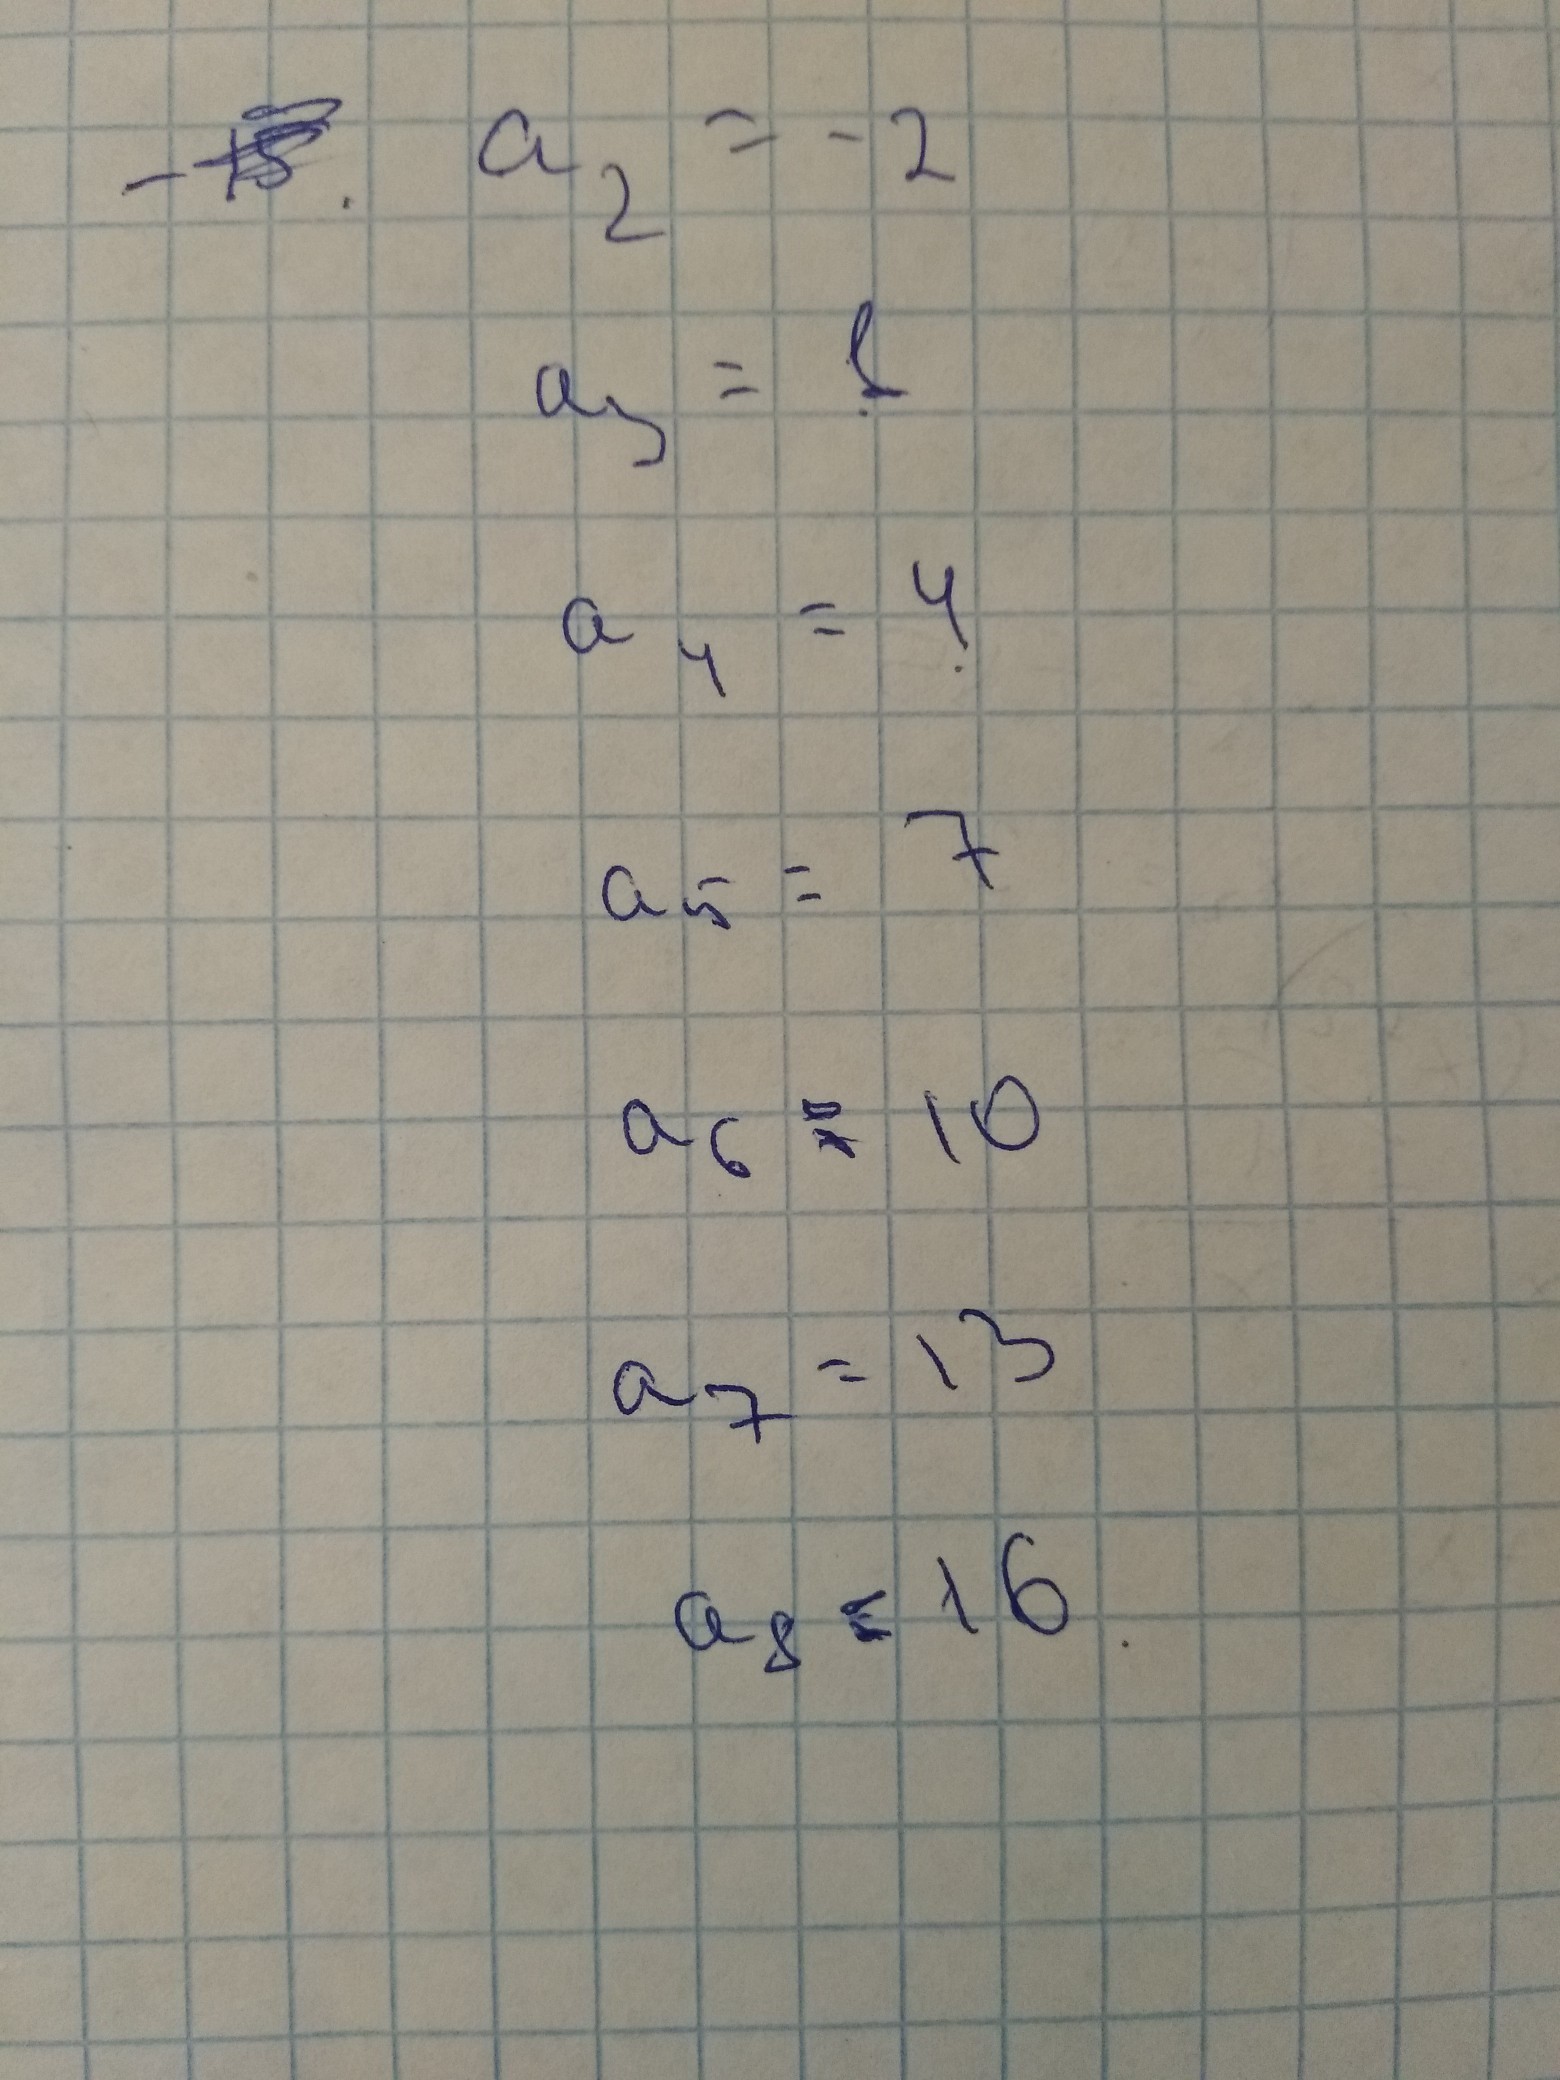 a₂ = -2
a₃ = 1
a₄ = 4
a₅ = 7
a₆ = 10
a₇ = 13
a₈ = 16